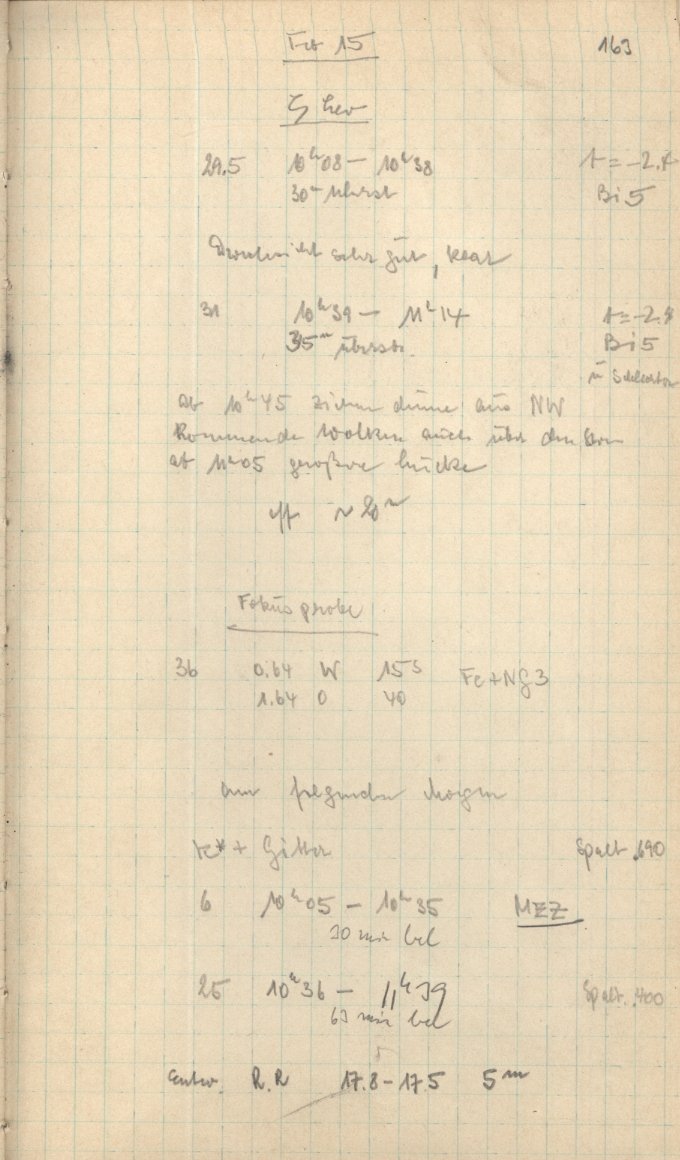 Feb 15 163
ζ Leo
29.5 10ʰ08 – 10ʰ38 t = -2.4
30ᵐ überst Bi 5
Durchsicht sehr gut, klar
31 10ʰ39 – 11ʰ14
35ᵐ überst. Bi 5
ab 10ʰ45 ziehen dünne aus NW
kommende Wolken auch über den Stern
ab 11ʰ05 große Lücke
eff ~ 20ᵐ
Fokusprobe
36 0.64 W 15ˢ Fe+NG3
1.64 O 40
am folgenden Morgen
+ Gitter Spalt .690
6 10ʰ05 – 10ʰ35 MEZ
30 min bel
25 10ʰ36 – 11ʰ39 Spalt. .400
63 min bel
Entw. R.R 17.8 – 17.5 5ᵐ